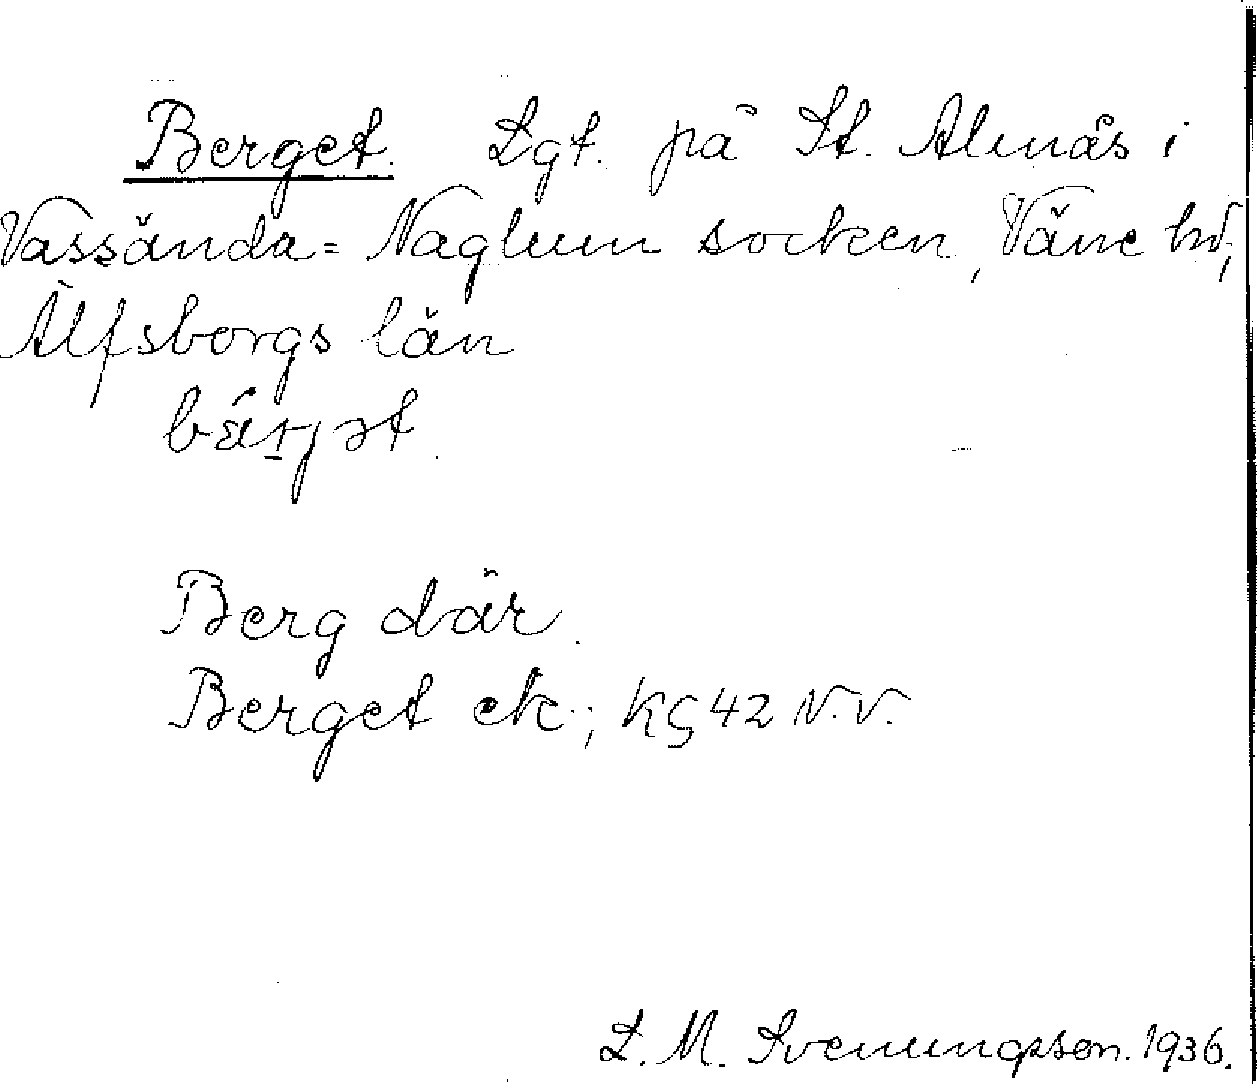 Berget. Lgt. på St. Alnäs i
Vassända=Naglum socken, Väne hd,
Älfsborgs län
bä́rjət.
Berg där.
Berget ek.; KG 42 N.V.
L. M. Svenungsson. 1936.